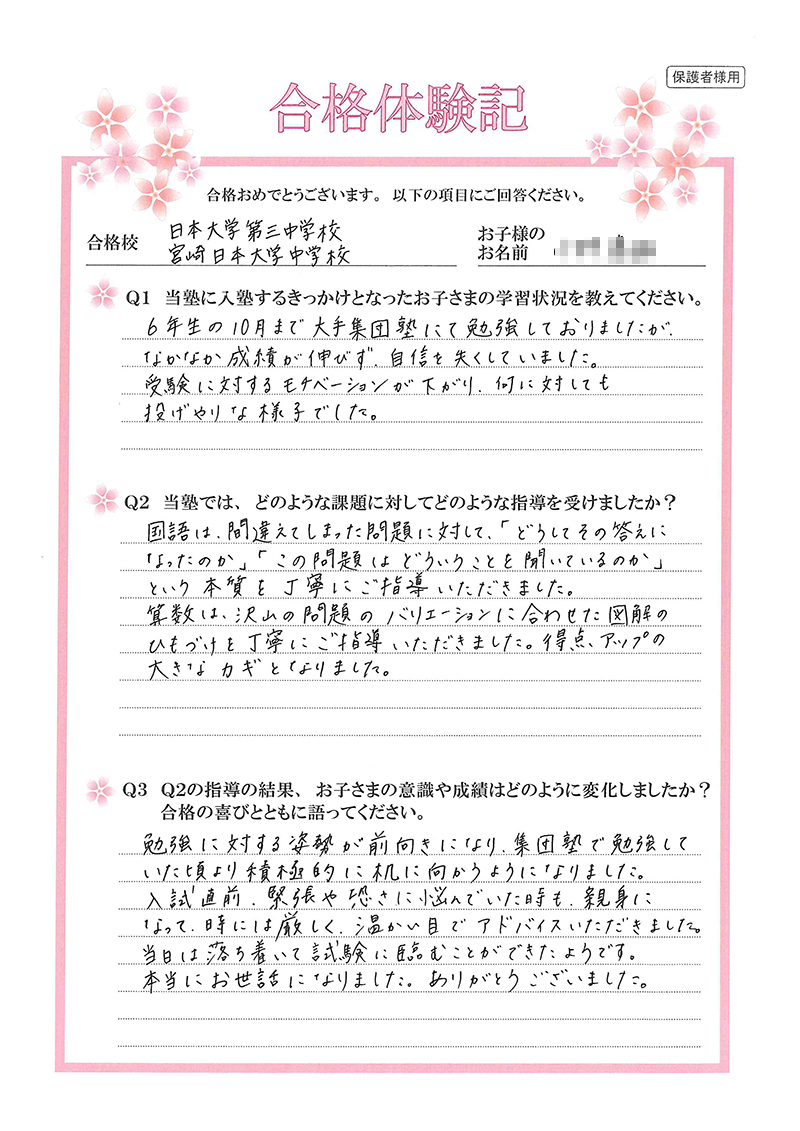 保護者様用
合格体験記
合格おめでとうございます。以下の項目にご回答ください。
合格校
日本大学第三中学校
宮崎日本大学中学校
お子様の
お名前
Q1 当塾に入塾するきっかけとなったお子さまの学習状況を教えてください。
6年生の10月まで大手集団塾にて勉強しておりましたが、
なかなか成績が伸びず、自信を失くしていました。
受験に対するモチベーションが下がり、何に対しても
投げやりな様子でした。
Q2 当塾では、どのような課題に対してどのような指導を受けましたか？
国語は、間違えてしまった問題に対して、「どうしてその答えに
なったのか」「この問題はどういうことを聞いているのか」
という本質を丁寧にご指導いただきました。
算数は、沢山の問題のバリエーションに合わせた図解の
ひもづけを丁寧にご指導いただきました。得点アップの
大きなカギとなりました。
Q3 Q2の指導の結果、お子さまの意識や成績はどのように変化しましたか？
合格の喜びとともに語ってください。
勉強に対する姿勢が前向きになり、集団塾で勉強して
いた頃より積極的に机に向かうようになりました。
入試直前、緊張や恐さに悩んでいた時も、親身に
なって、時には厳しく、温かい目でアドバイスいただきました。
当日は落ち着いて試験に臨むことができたようです。
本当にお世話になりました。ありがとうございました。